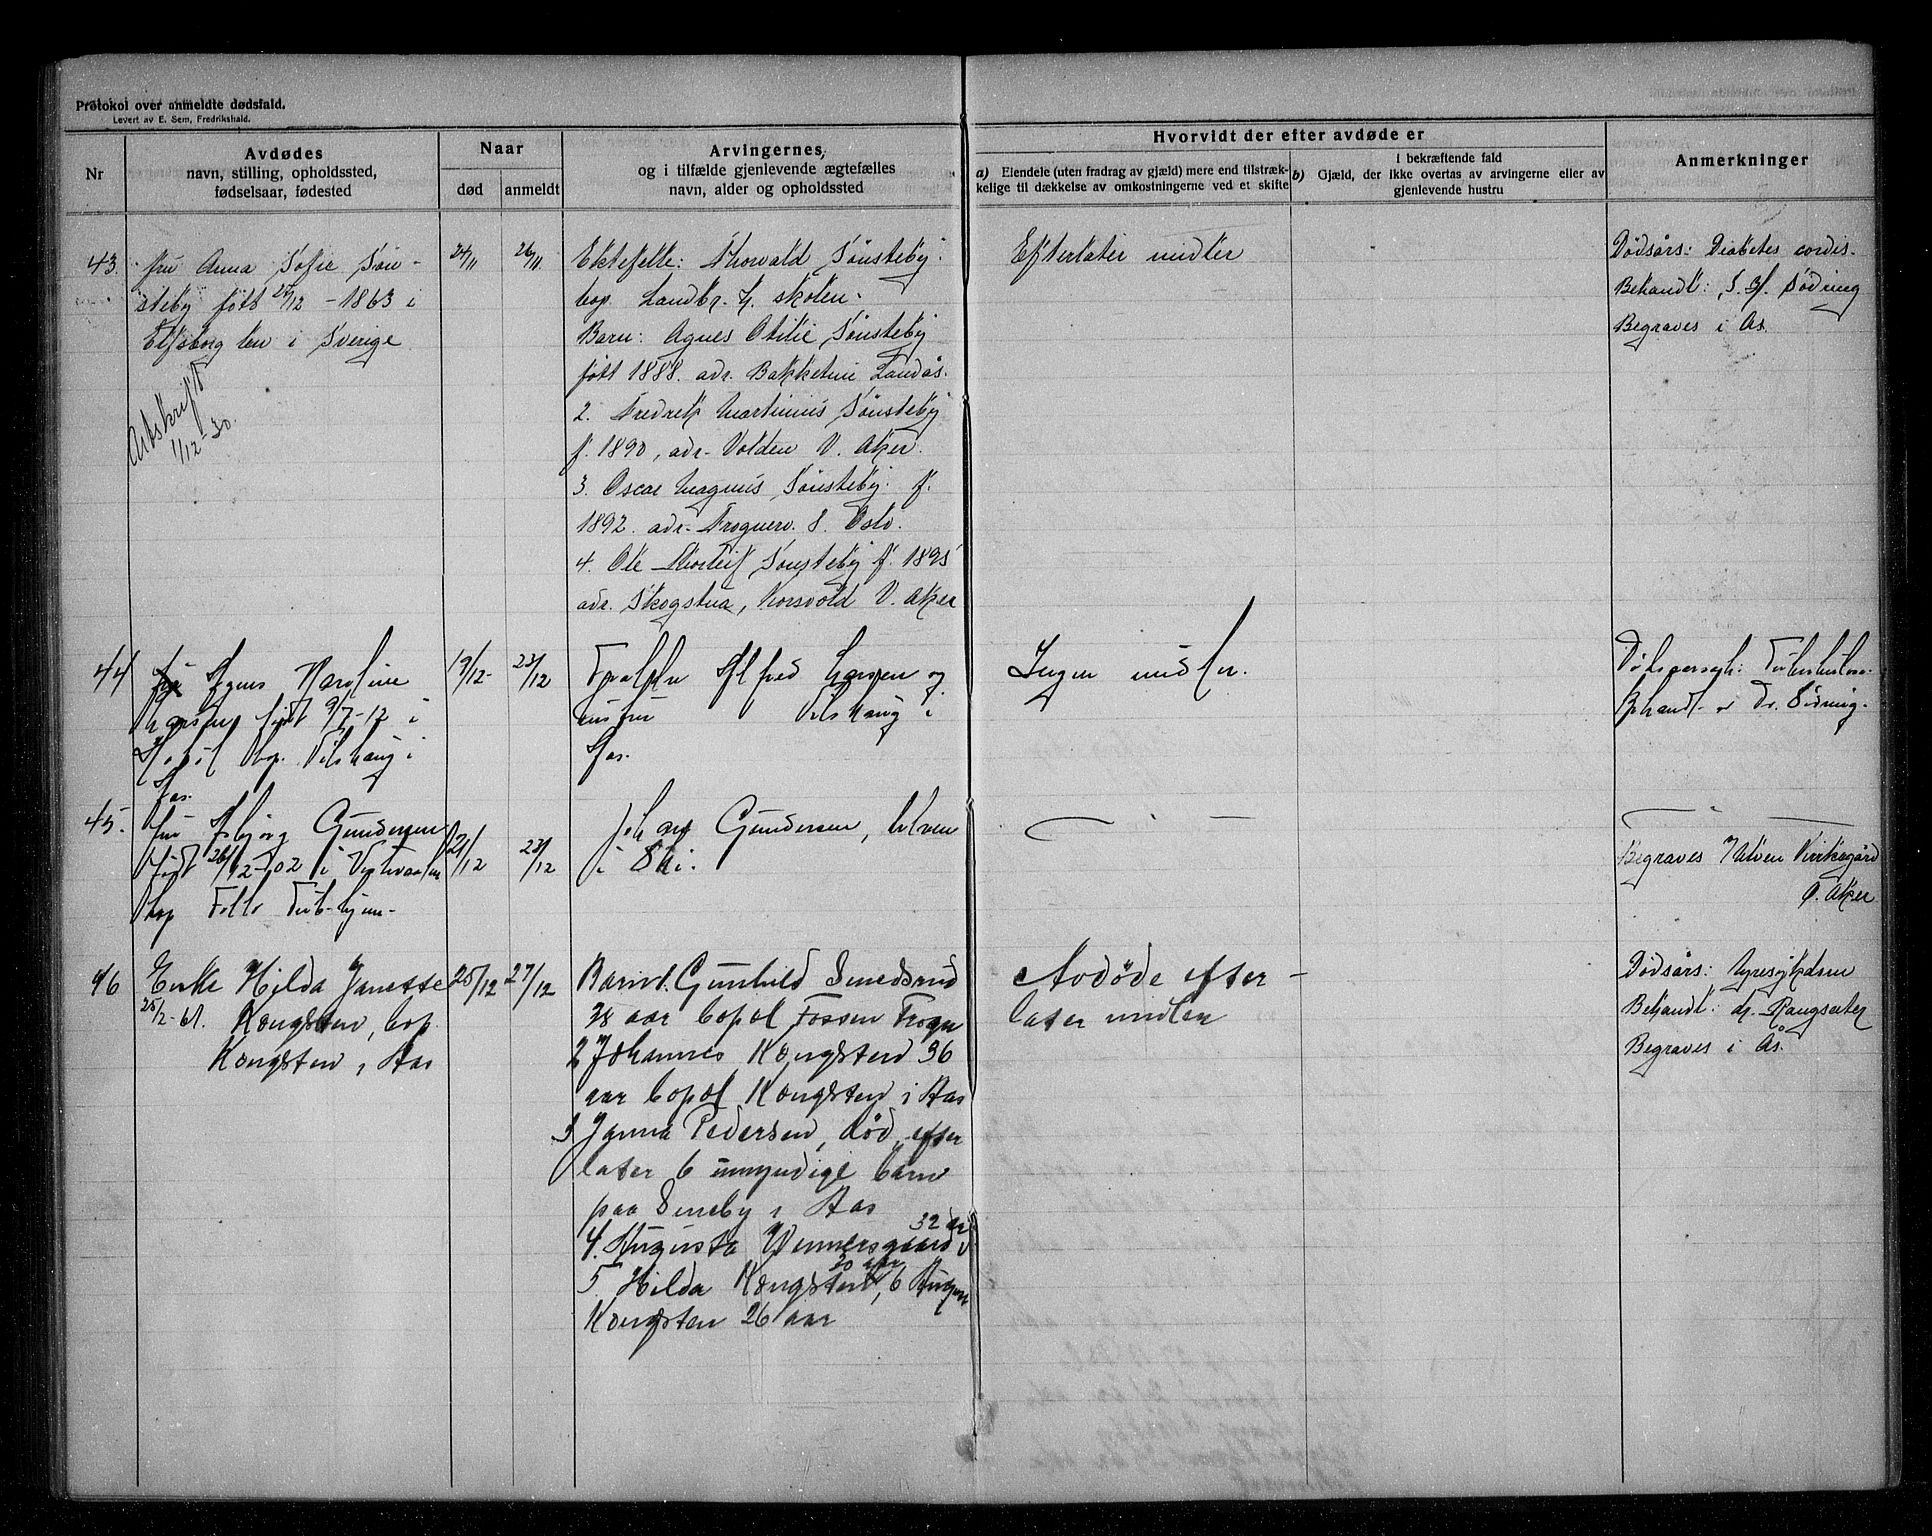 Protokol over anmeldte dødsfald.
Levert av E. Sem, Fredrikshald.
Nr
Avdødes
navn, stilling, opholdssted,
fødselsaar, fødested
Naar
død
anmeldt
Arvingernes,
og i tilfælde gjenlevende ægtefælles
navn, alder og opholdssted
Hvorvidt der efter avdøde er
a) Eiendele (uten fradrag av gjæld) mere end tilstræk-
kelige til dækkelse av omkostningerne ved et skifte
i bekræftende fald
b) Gjæld, der ikke overtas av arvingerne eller av
gjenlevende hustru
Anmerkninger
43.
fru Anna Sofie Søn-
steby født 24/12 - 1863 i
Elfsborg len i Sverige
Avskrift
1/12-30.
24/11
26/11
Ektefelle: Thorvald Sønsteby.
bop. Landbr. H. skolen.
Barn: Agnes Otilie Sønsteby
født 1888. adr. Bakketun, Landås.
2. Fredrik Martinius Sønsteby
f. 1890, adr. Volden V. Aker.
3. Oscar Magnus Sønsteby. f.
1892. adr. Frognerv. 8. Oslo.
4. Ole Thorleif Sønsteby f. 1895
adr. Skogstua, Korsvold V. Aker
Efterlater midler
Dødsårs: Diabetes cordis.
Behandl: S. H. Sødring
Begraves i Ås.
44
Agnes Karoline
Larsen født 9/7-12 i
Hobøl bop. Vilshaug i
Aas.
19/12-
23/12
Foreldre Alfred Larsen og
hustru Vilshaug i
Aas.
Ingen midler.
Dødsaarsak: Tuberkulose
Behandl. Dr. Sødring.
45.
fru Asbjørg Gundersen
født 26/12-02 i
bop Follo Tub-hjem-
21/12
23/12
Johan Gundersen, Ulven
i Ski.
— " —
— " —
Begraves Ulven Kirkegård
Ø. Aker
46
Enke Hilda Janette
25/2-61. Kongsten, bop
Kongsten i Aas
25/12
27/12
Barn 1. Gunhild Smedsrud
38 aar bopæl Fossen Frogn
2 Johannes Kongsten 36
aar bopæl Kongsten i Aas
3 Janna Pedersen, død, efter
later 6 umyndige barn
paa Seneby i Aas
4. Augusta Wennersgaard 32 aar
5. Hilda Kongsten 30 aar, 6 August
Kongsten 26 aar
Avdøde efter-
later midler
Dødsårs: Nyresykdom
Behandl: dr. Rangsæter
Begraves i Ås.